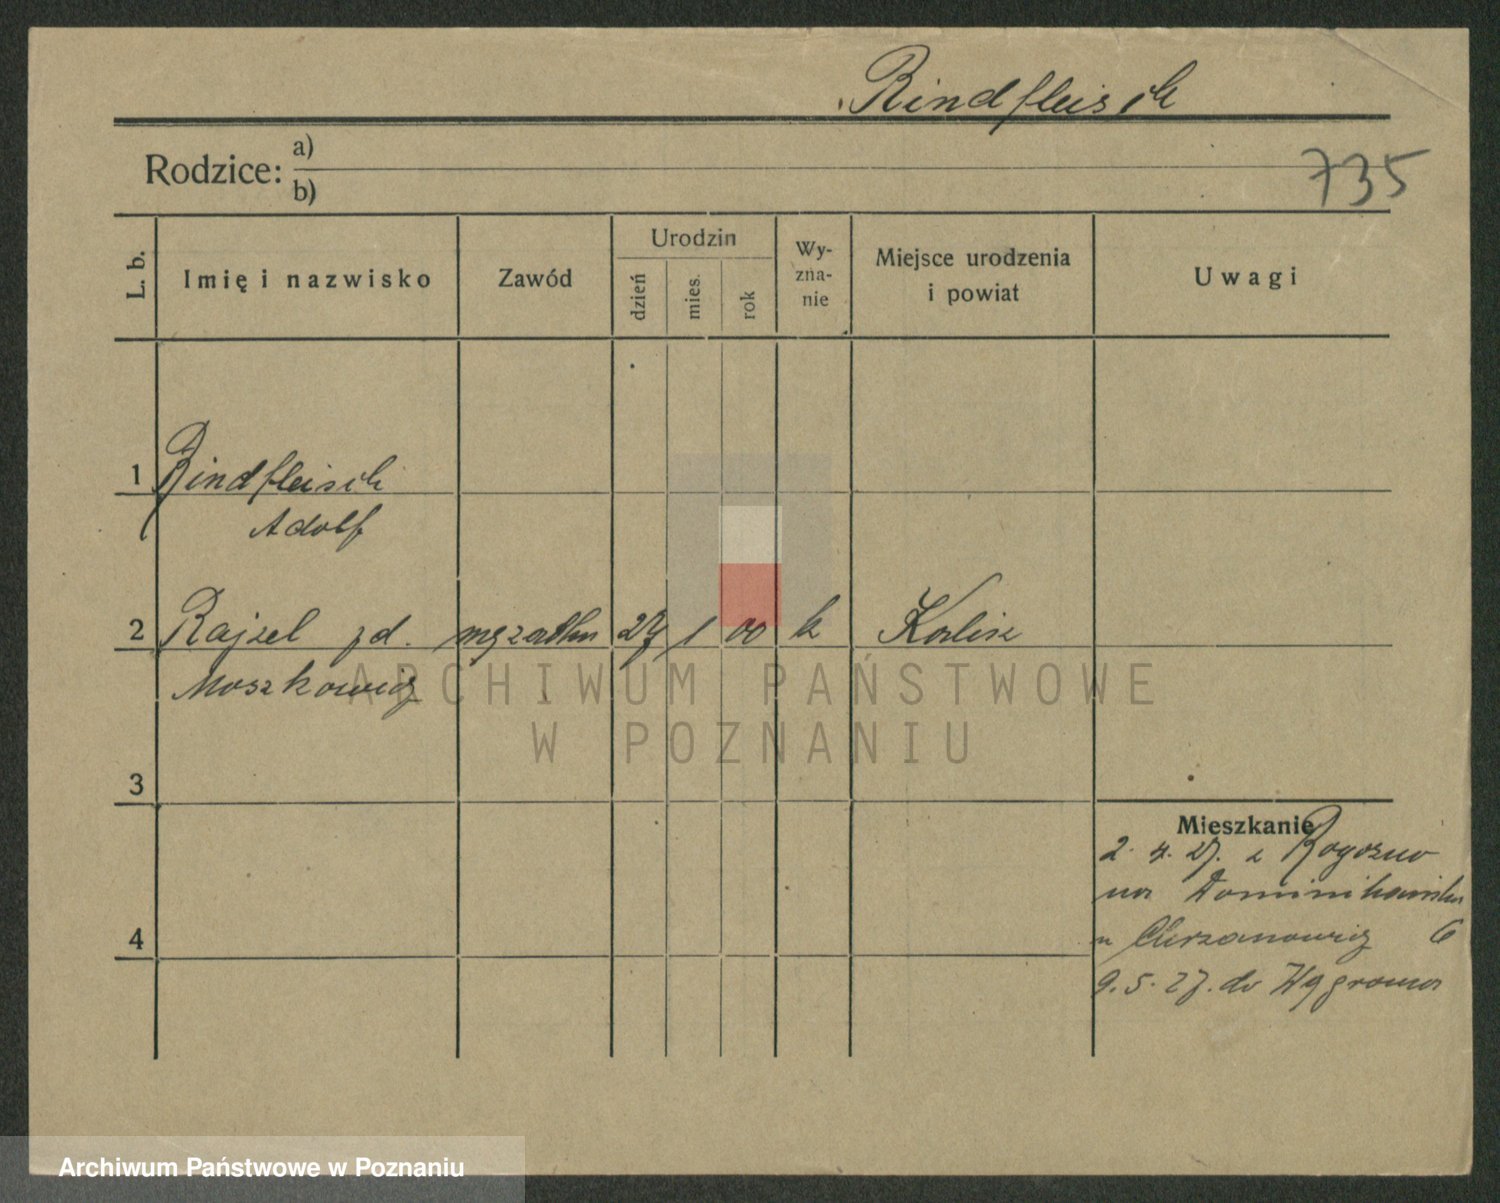 Rindfleisch
Rodzice: a)
b)
735
L. b.
Imię i nazwisko
Zawód
Urodzin
dzień
mies.
rok
Wy-
zna-
nie
Miejsce urodzenia
i powiat
Uwagi
1 Rindfleisch
Adolf
2 Rajzel zd. mężatka 27 1 00 k Kalisz
Moszkowicz
3
Mieszkanie
2. 4. 27. z Rogoźno
na Dominikańska
u Chrzanowicz 6
4
9. 5. 27. do Wągrowca
ARCHIWUM PAŃSTWOWE
W POZNANIU
Archiwum Państwowe w Poznaniu